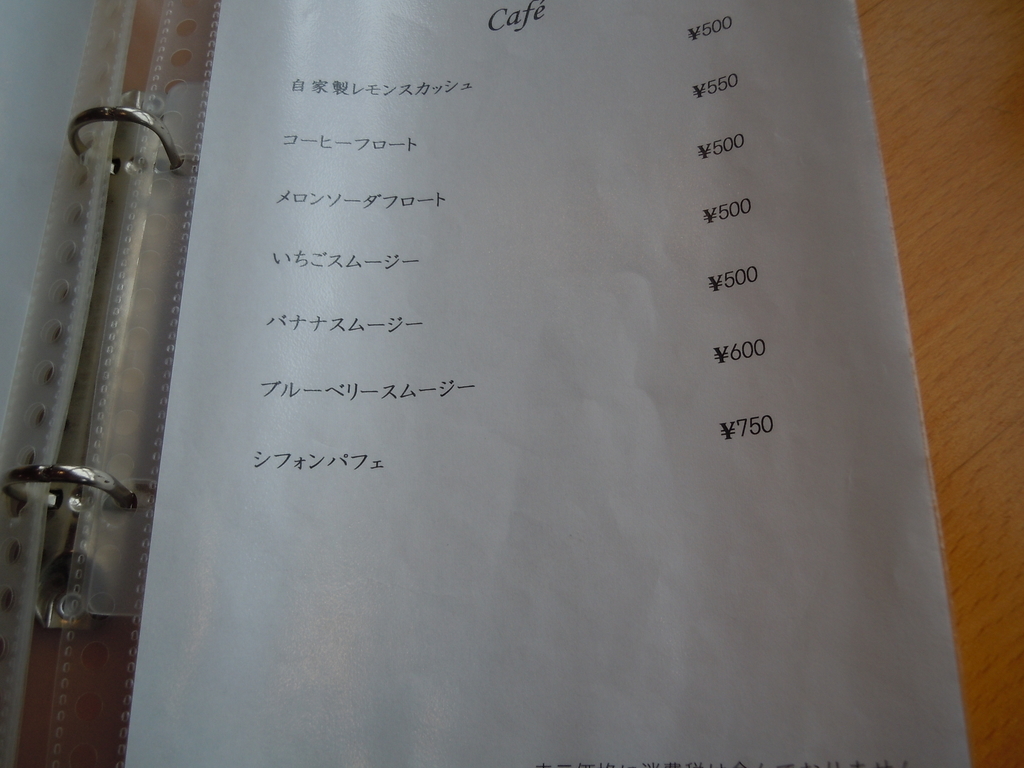 Café
自家製レモンスカッシュ ¥500
コーヒーフロート ¥550
メロンソーダフロート ¥500
いちごスムージー ¥500
バナナスムージー ¥500
ブルーベリースムージー ¥600
シフォンパフェ ¥750
表示価格に消費税は含んでおりません